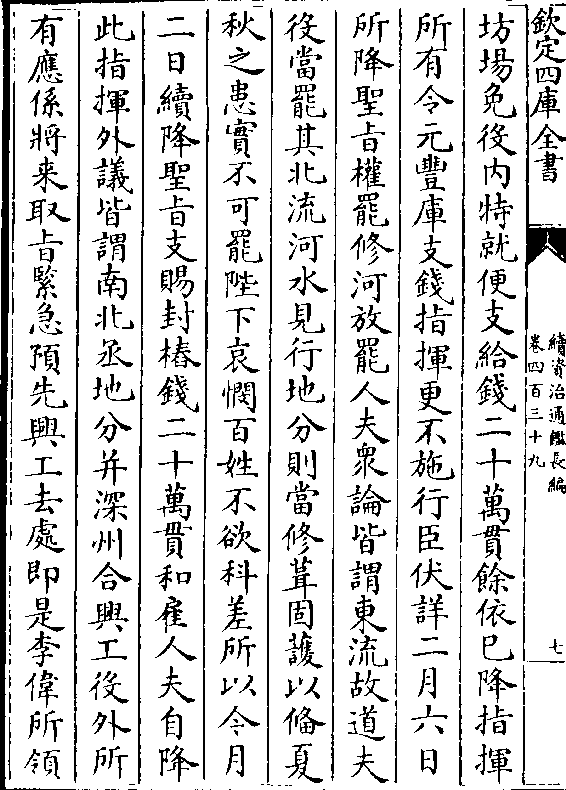 欽定四庫全書
續資治通鑑長編
卷四百三十九
七
坊場免役内特就便支給錢二十萬貫餘依已降指揮
所有令元豐庫支錢指揮更不施行臣伏詳二月六日
所降聖旨權罷修河放罷人夫衆論皆謂東流故道夫
役當罷其北流河水見行地分則當修葺固護以備夏
秋之患實不可罷陛下哀憫百姓不欲科差所以今月
二日續降聖旨支賜封樁錢二十萬貫和雇人夫自降
此指揮外議皆謂南北丞地分并深州合興工役外所
有應係將来取旨緊急預先興工去處即是李偉所領